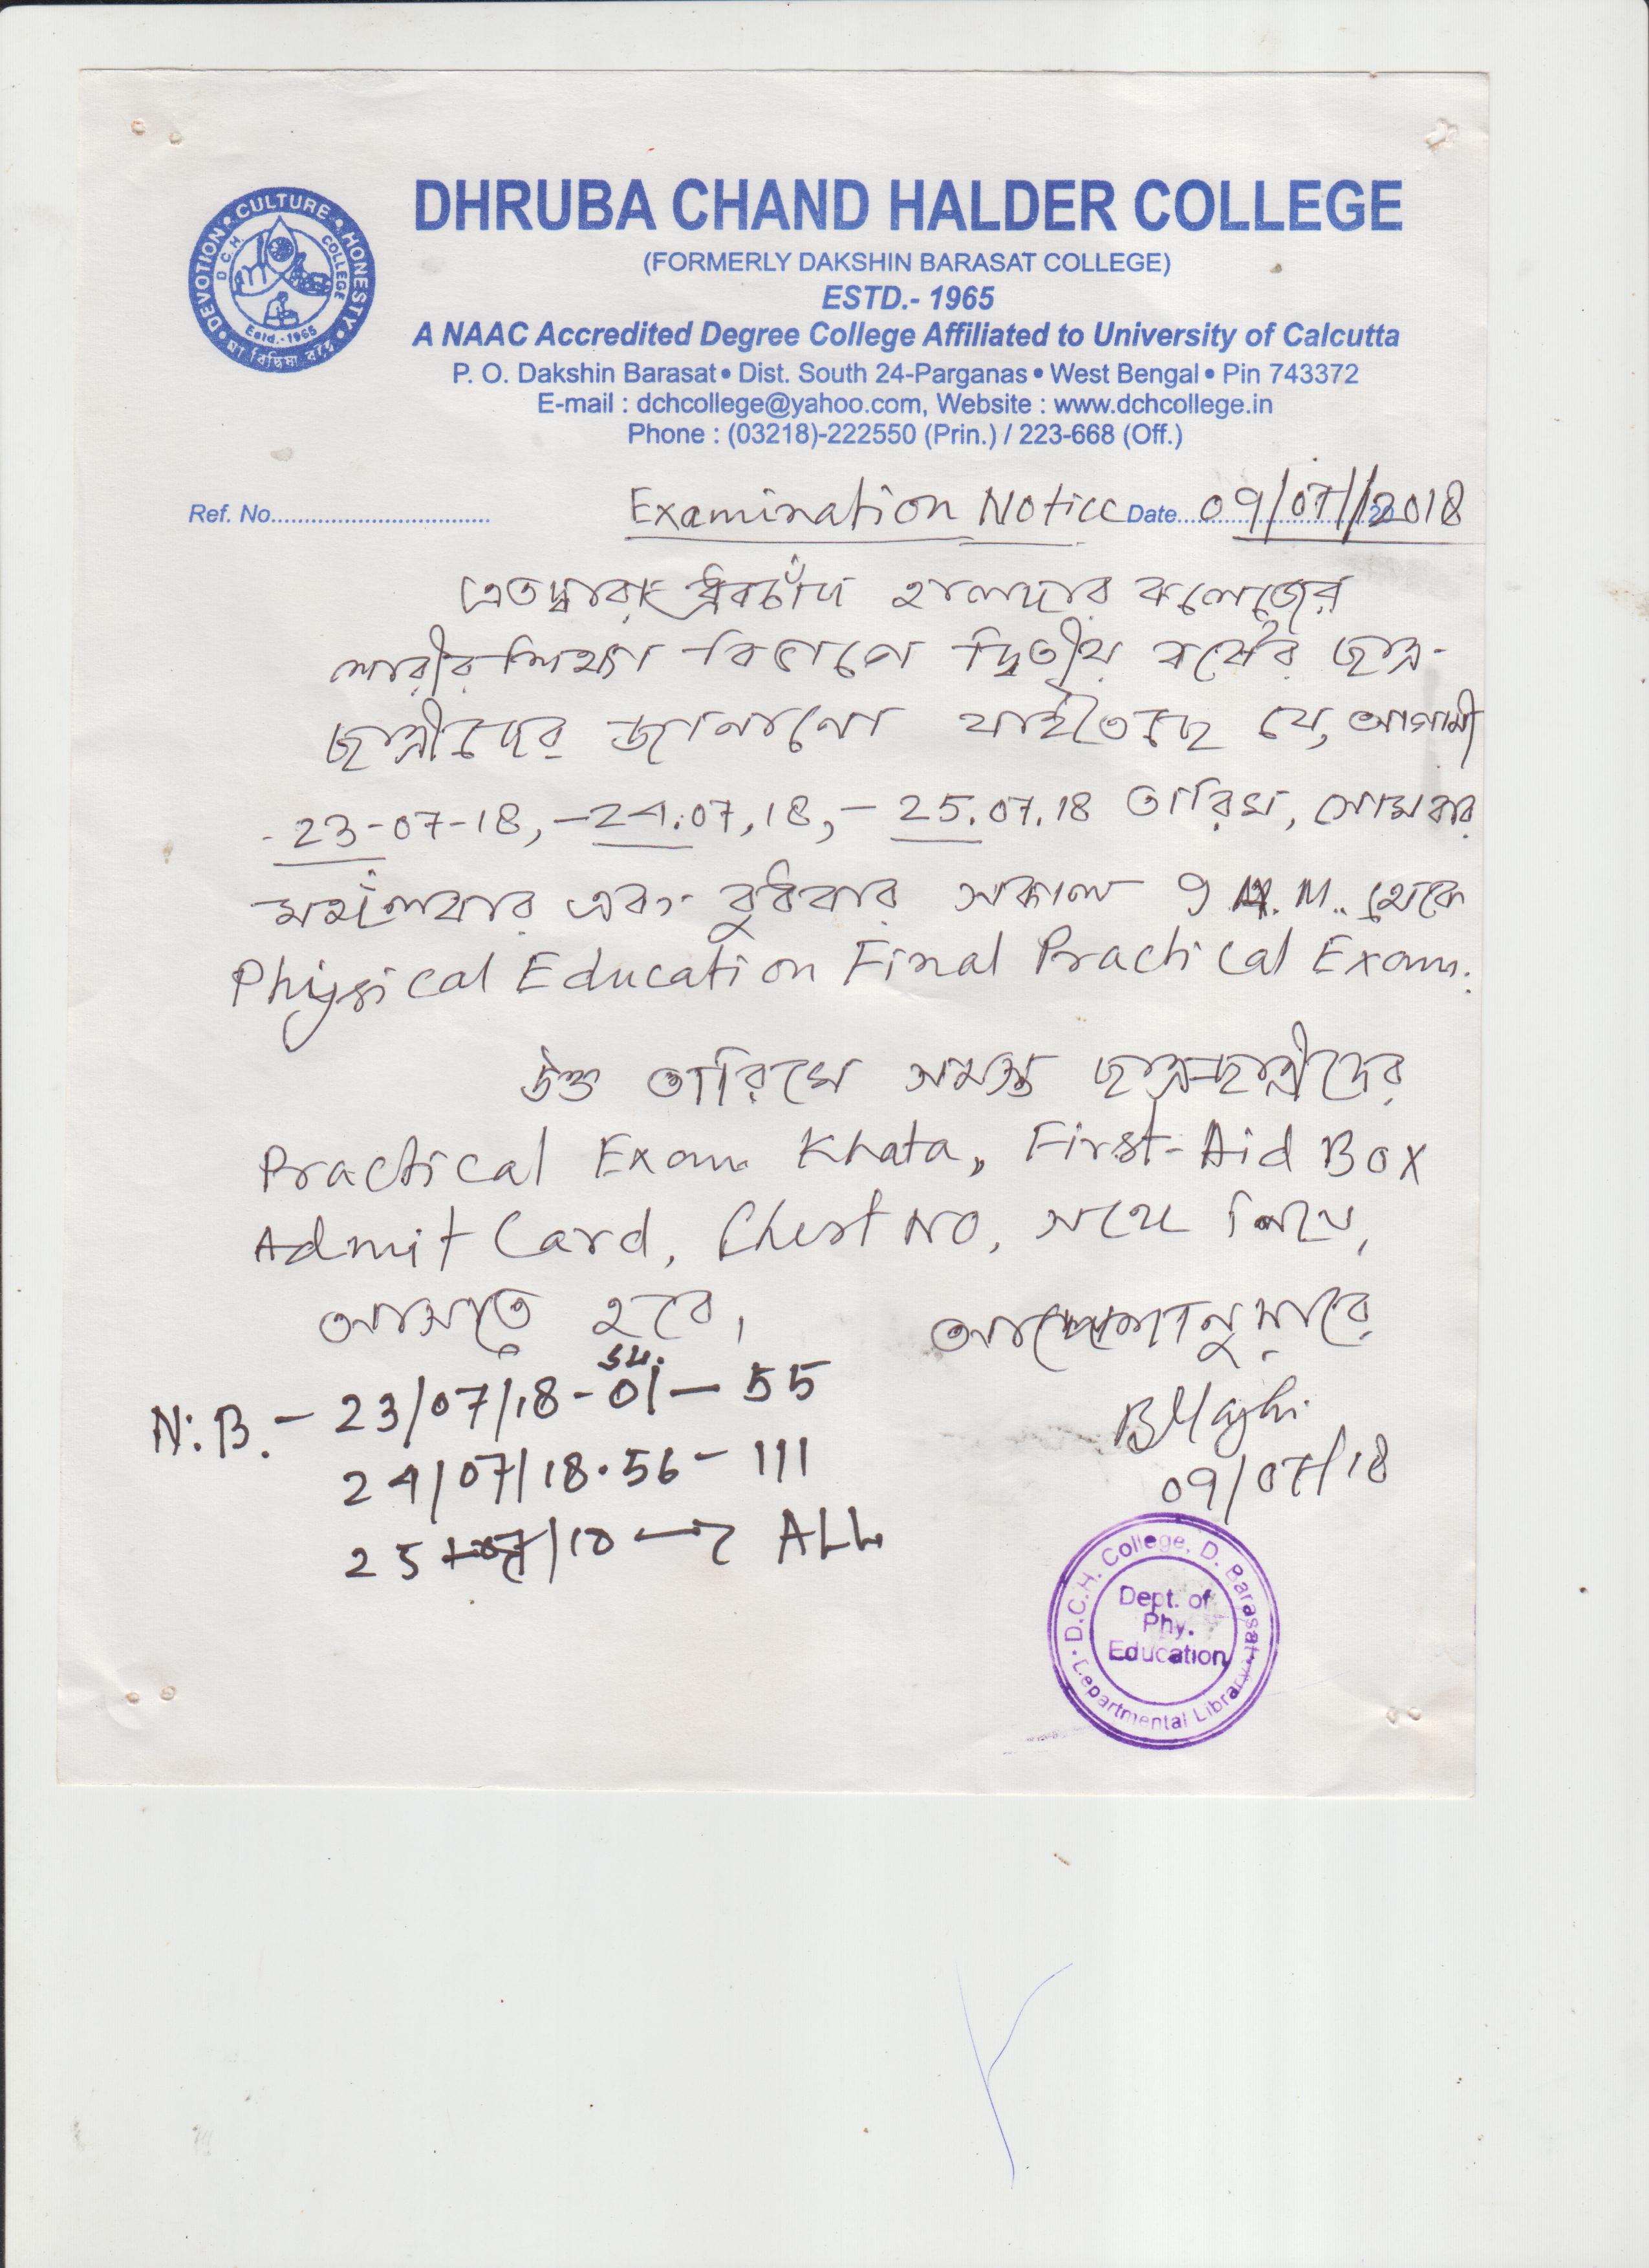 DEVOTION • CULTURE • HONESTY
D. C. H. COLLEGE
Estd.-1965
DHRUBA CHAND HALDER COLLEGE
(FORMERLY DAKSHIN BARASAT COLLEGE)
ESTD.- 1965
A NAAC Accredited Degree College Affiliated to University of Calcutta
P. O. Dakshin Barasat • Dist. South 24-Parganas • West Bengal • Pin 743372
E-mail : dchcollege@yahoo.com, Website : www.dchcollege.in
Phone : (03218)-222550 (Prin.) / 223-668 (Off.)
Ref. No. Examination Notice Date 09/07/2018
এতদ্বারা ধ্রুবচাঁদ হালদার কলেজের
শারীরশিক্ষা বিভাগে দ্বিতীয় বর্ষের ছাত্র-
ছাত্রীদের জানানো যাইতেছে যে, আগামী
23-07-18, - 24.07.18, - 25.07.18 তারিখ, সোমবার
মঙ্গলবার এবং বুধবার সকাল 9 A.M. থেকে
Physical Education Final Practical Exam.
উক্ত তারিখে সমস্ত ছাত্র-ছাত্রীদের
Practical Exam. Khata, First-Aid Box
Admit Card, Chest NO, সাথে নিয়ে,
আসতে হবে, আদেশানুসারে
N.B. - 23/07/18 - 01 - 55
BMajhi
24/07/18 . 56 - 111
09/07/18
25/07/18 → ALL
D.C.H. College, D. Barasat
Dept. of
Phy.
Education
Departmental Library